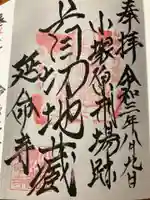 奉拝 令和三年 月 日
小塚原刑場跡
首切地蔵
延命寺